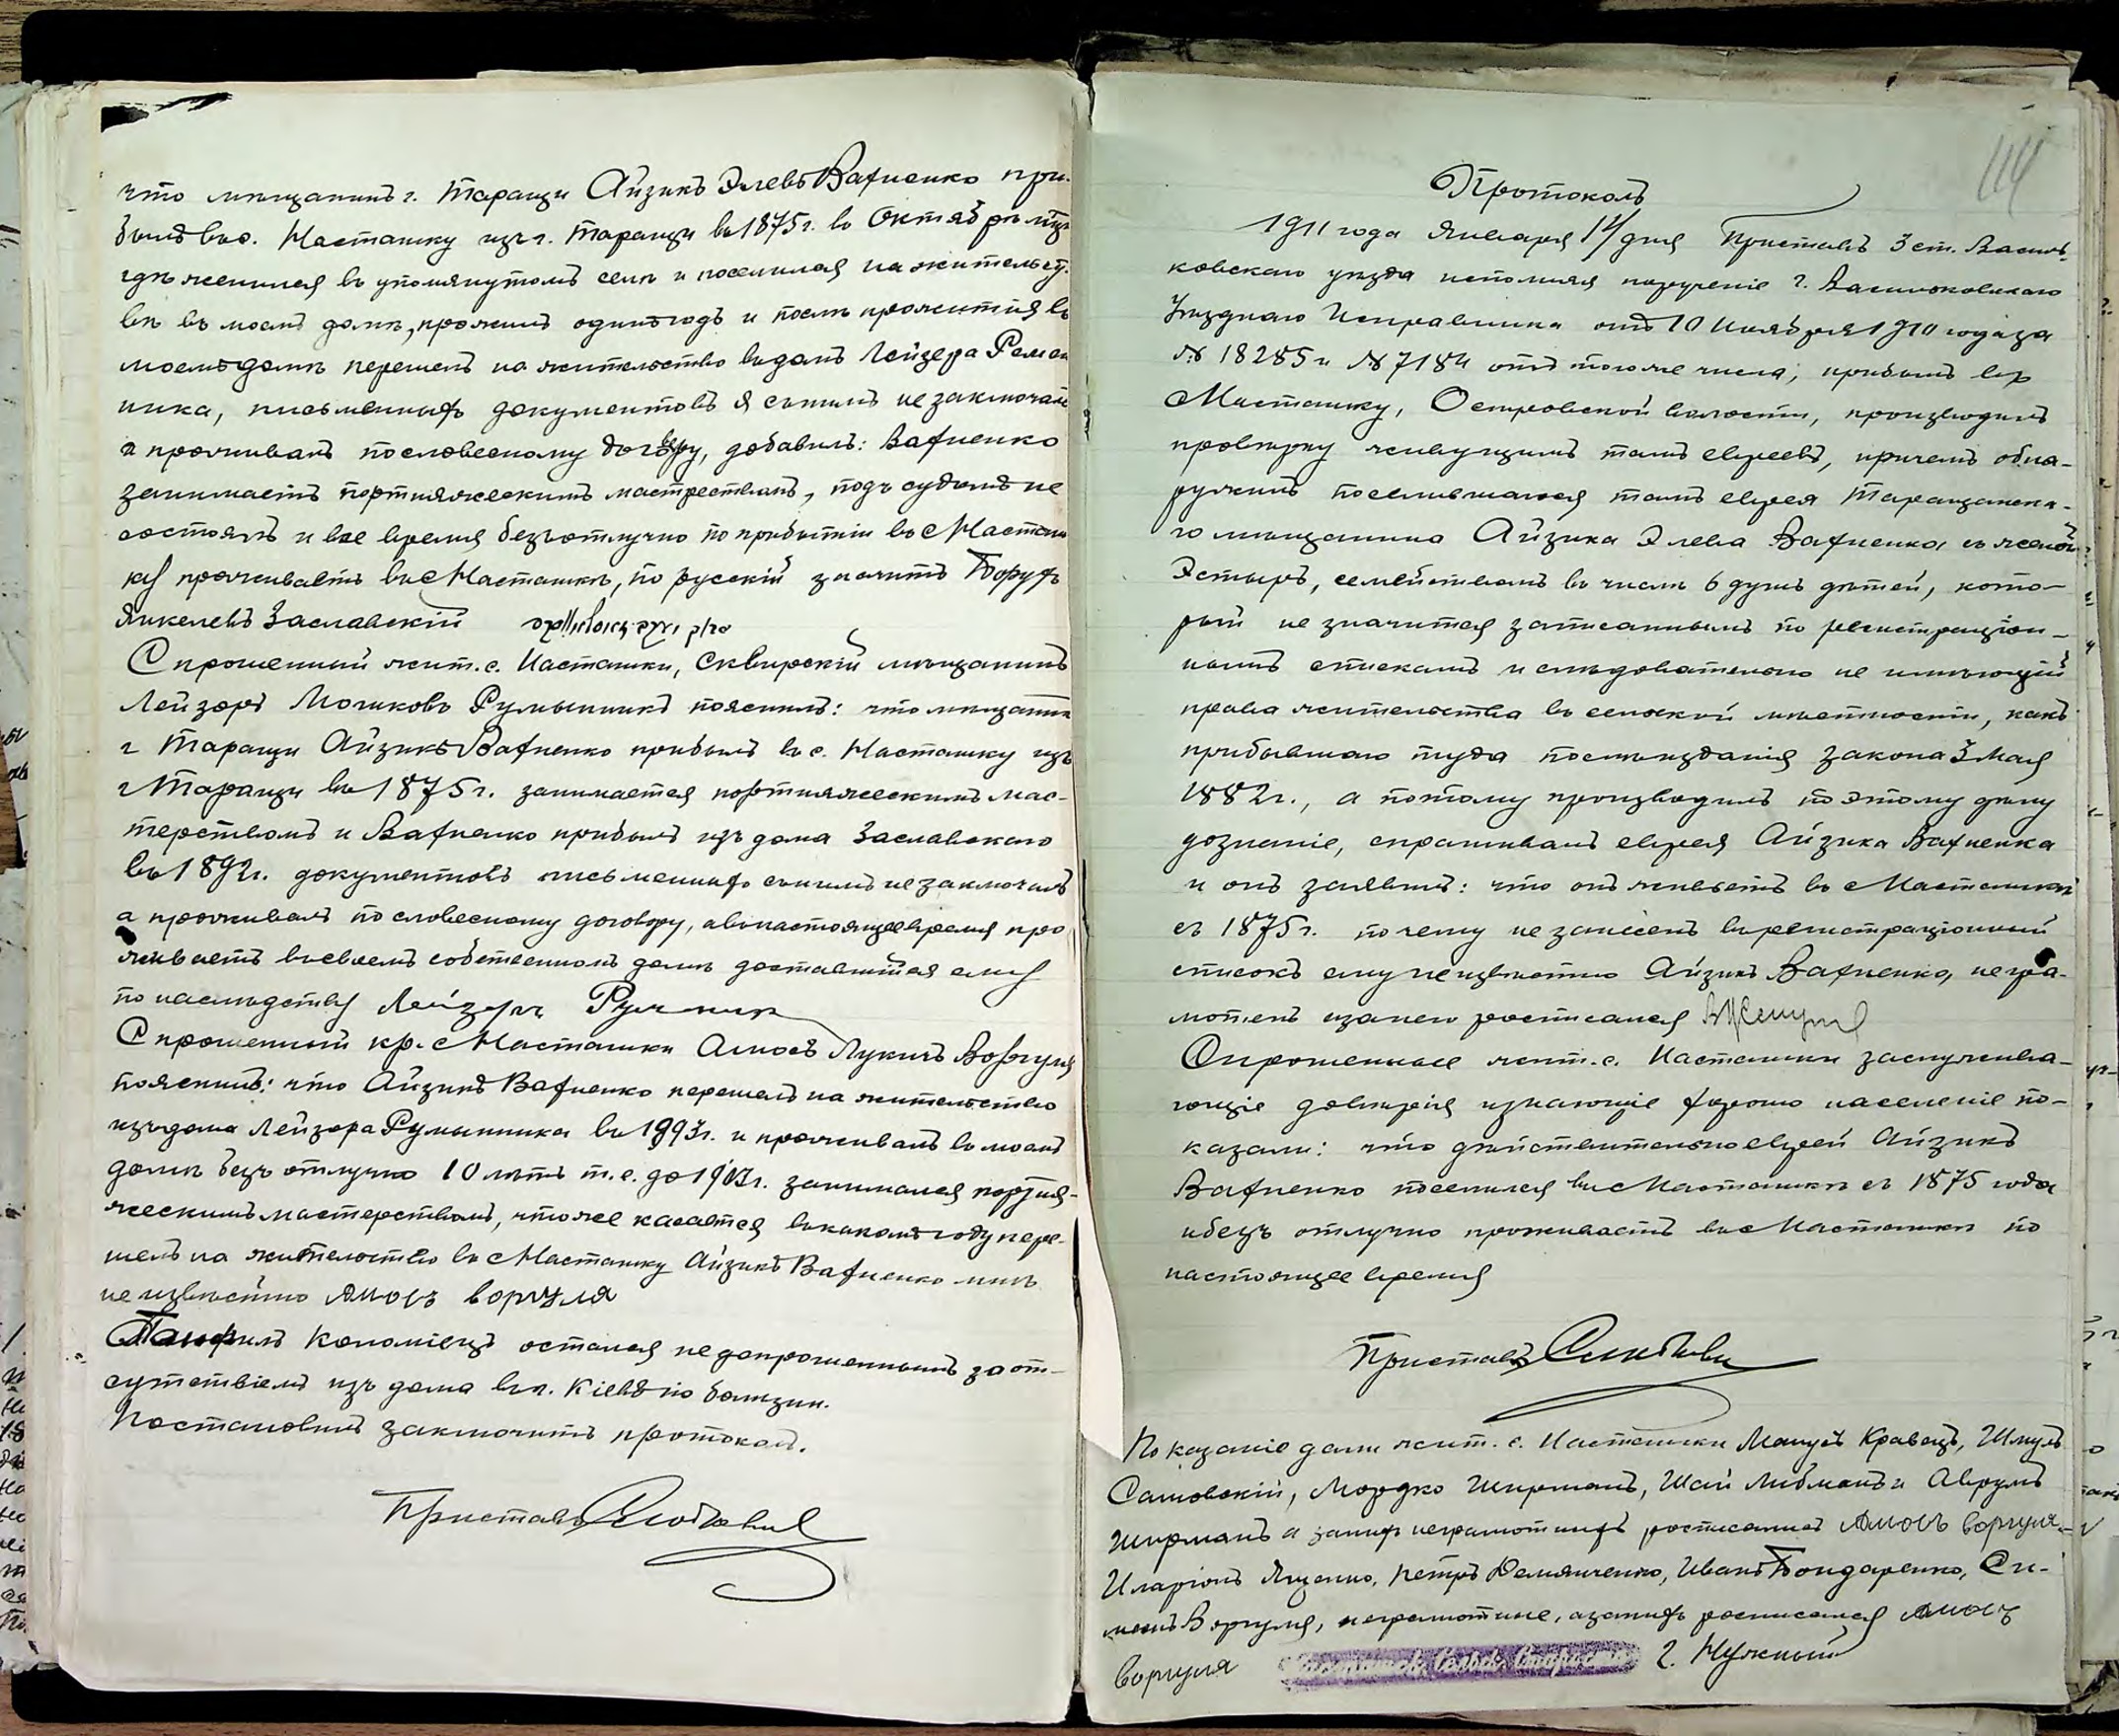 что мѣщанинъ г. Таращи Айзикъ Элевъ Вахненко при-
былъ въ с. Насташку изъ г. Таращи въ 1875 г. въ Октябрѣ мѣс
гдѣ женился въ упомянутомъ селѣ и поселился на жительст-
вѣ въ моемъ домѣ, прожилъ одинъ годъ и послѣ прожитія въ
моемъ домѣ перешелъ на жительство въ домъ Лейзера
ника, письменныхъ документовъ я съ нимъ не заключалъ
а проживалъ по словесному договору, добавилъ: Вахненко
занимаетъ портняжескимъ мастрествамъ, подъ судомъ не
состоялъ и все время безъотлучно по прибытіи въ с Насташ
ку проживаетъ въ с Насташкѣ, по русскій значитъ Борухъ
Янкелевъ Заславскій
Спрошенный жит. с. Насташки, Сквирскій мѣщанинъ
Лейзоръ Мошковъ Румынникъ пояснилъ: что мѣщанинъ
г Таращи Айзикъ Вахненко прибылъ въ с. Насташку изъ
г Таращи въ 1875 г. занимается портняжескимъ мас-
терствомъ и Вахненко прибылъ изъ дома Заславскаго
въ 1892 г. документовъ письменныхъ съ нимъ не заключалъ
а проживалъ по словесному договору, а въ настоящее время про
живаетъ въ своемъ собственномъ домѣ доставшійся ему
по наслѣдству Лейзеръ
Спрошенный кр. с Насташки Амосъ Лукичъ Воргуля
пояснилъ: что Айзикъ Вахненко перешелъ на жительство
изъ дома Лейзора Румынника въ 1893 г. и проживалъ въ моемъ
домѣ безъ отлучно 10 лѣтъ т.е. до 1903 г. занимался портня-
жескимъ мастерствомъ, что же касается въ какомъ году пере-
шелъ на жительство въ с Насташку Айзикъ Вахненко мнѣ
не извѣстно Амосъ воргуля
Панфилъ Коломіецъ остался не допрошеннымъ за от-
сутствіемъ изъ дома въ г. Кіевѣ по болѣзни.
Постановилъ заключить протоколъ.
Приставъ
114
Протоколъ
1911 года Января дня Приставъ 3 ст. Василь-
ковскаго уѣзда исполняя порученіе г. Васильковскаго
Уѣзднаго Исправника отъ 10 Ноября 1910 года за
№ 18285 и № 7184 отъ того же числа, прибылъ въ с
Насташку, Островской волости, производилъ
провѣрку живущимъ тамъ евреевъ, причемъ обна-
ружилъ поселившагося тамъ еврея Таращанска-
го мѣщанина Айзика Элева Вахненка съ женой
Эстыръ, семействамъ въ числѣ 6 душъ дѣтей, кото-
рый не значится записаннымъ по регистраціон-
нымъ спискамъ и слѣдовательно не имѣющій
права жительства въ сельской мѣстности, какъ
прибывшаго туда послѣ изданія закона 3 Мая
1882 г., а потому производилъ по этому дѣлу
дознаніе, спрашивалъ еврея Айзика Вахненка
и онъ заявилъ: что онъ живетъ въ с Насташкѣ
съ 1875 г. почему не занесенъ въ регистраціонный
списокъ ему неизвѣстно Айзикъ Вахненко, негра-
мотенъ за него росписался
Спрошенные жит. с. Насташки заслужива-
ющіе довѣрія и знающіе хорошо населеніе по-
казали: что дѣйствительно еврей Айзикъ
Вахненко поселился въ с Насташкѣ съ 1875 года
и безъ отлучно проживаетъ въ с Насташкѣ по
настоящее время
Приставъ
Показаніе дали жит. с. Насташки Манусъ Кравецъ, Шмуль
Сатовскій, Мордко Ширманъ, Шай Либманъ и Аврумъ
Ширманъ а за нихъ неграмотныхъ росписался Амосъ воргуля.
Иларіонъ Яценко, Петръ Демянченко, Иванъ Бондаренко, Си-
монъ Воргуля, неграмотные, а за нихъ росписался Амосъ
воргуля г. Нужный